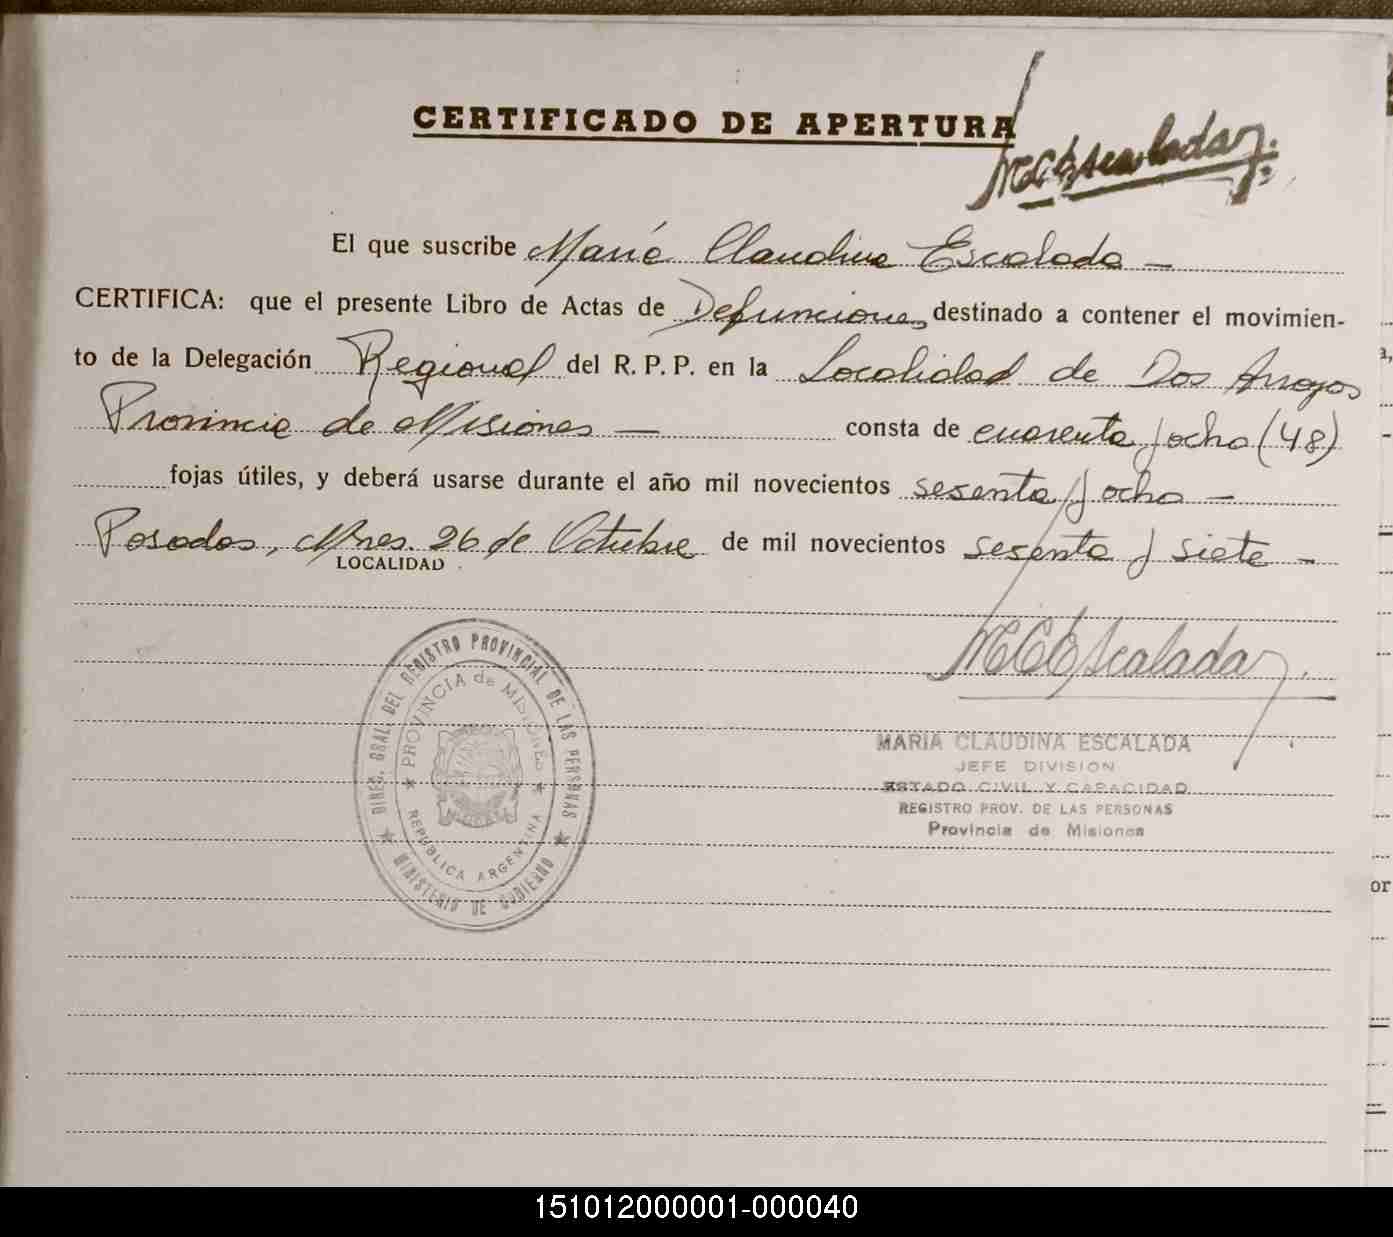 CERTIFICADO DE APERTURA
MCEscalada
El que suscribe María Claudina Escalada —
CERTIFICA: que el presente Libro de Actas de Defunciones destinado a contener el movimien-
to de la Delegación Regional del R. P. P. en la Localidad de Dos Arroyos
Provincia de Misiones — consta de cuarenta y ocho (48)
fojas útiles, y deberá usarse durante el año mil novecientos sesenta y ocho —
Posadas, Mnes. 26 de Octubre de mil novecientos sesenta y siete —
LOCALIDAD
MCEscalada
DIREC. GRAL. DEL REGISTRO PROVINCIAL DE LAS PERSONAS
PROVINCIA de MISIONES
REPUBLICA ARGENTINA
MINISTERIO DE GOBIERNO
MARIA CLAUDINA ESCALADA
JEFE DIVISION
ESTADO CIVIL Y CAPACIDAD
REGISTRO PROV. DE LAS PERSONAS
Provincia de Misiones
or
151012000001-000040